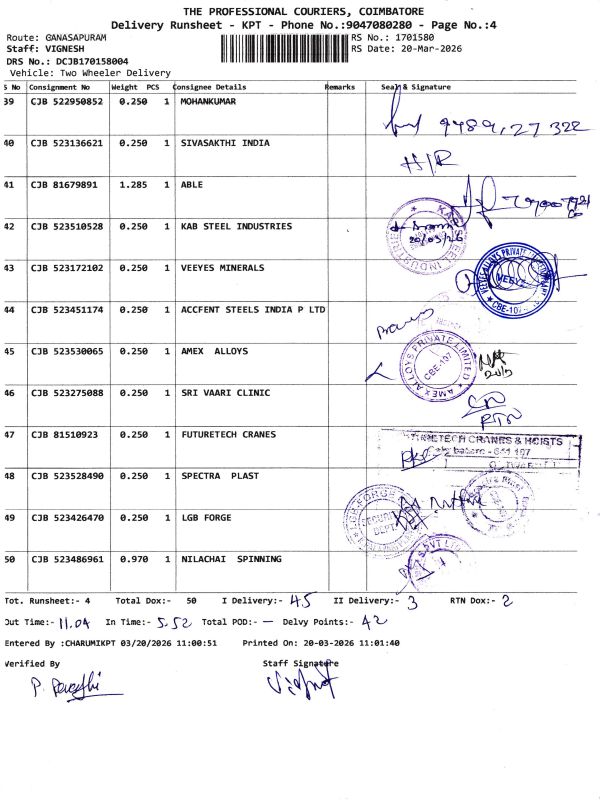 THE PROFESSIONAL COURIERS, COIMBATORE
Delivery Runsheet - KPT - Phone No.:9047080280 - Page No.:4
Route: GANASAPURAM
RS No.: 1701580
Staff: VIGNESH
RS Date: 20-Mar-2026
DRS No.: DCJB170158004
Vehicle: Two Wheeler Delivery
S No Consignment No Weight PCS Consignee Details Remarks Seal & Signature
39 CJB 522950852 0.250 1 MOHANKUMAR
40 CJB 523136621 0.250 1 SIVASAKTHI INDIA
H/R
41 CJB 81679891 1.285 1 ABLE
42 CJB 523510528 0.250 1 KAB STEEL INDUSTRIES
20/03/26
43 CJB 523172102 0.250 1 VEEYES MINERALS
CBE-107
44 CJB 523451174 0.250 1 ACCFENT STEELS INDIA P LTD
45 CJB 523530065 0.250 1 AMEX ALLOYS
AMEX ALLOYS PRIVATE LIMITED
CBE-107
46 CJB 523275088 0.250 1 SRI VAARI CLINIC
RTN
47 CJB 81510923 0.250 1 FUTURETECH CRANES
CRANES & HOISTS
48 CJB 523528490 0.250 1 SPECTRA PLAST
49 CJB 523426470 0.250 1 LGB FORGE
50 CJB 523486961 0.970 1 NILACHAI SPINNING
Tot. Runsheet:- 4 Total Dox:- 50 I Delivery:- 45 II Delivery:- 3 RTN Dox:- 2
Out Time:- 11.04 In Time:- 5.52 Total POD:- — Delvy Points:- 42
Entered By :CHARUMIKPT 03/20/2026 11:00:51 Printed On: 20-03-2026 11:01:40
Verified By Staff Signature